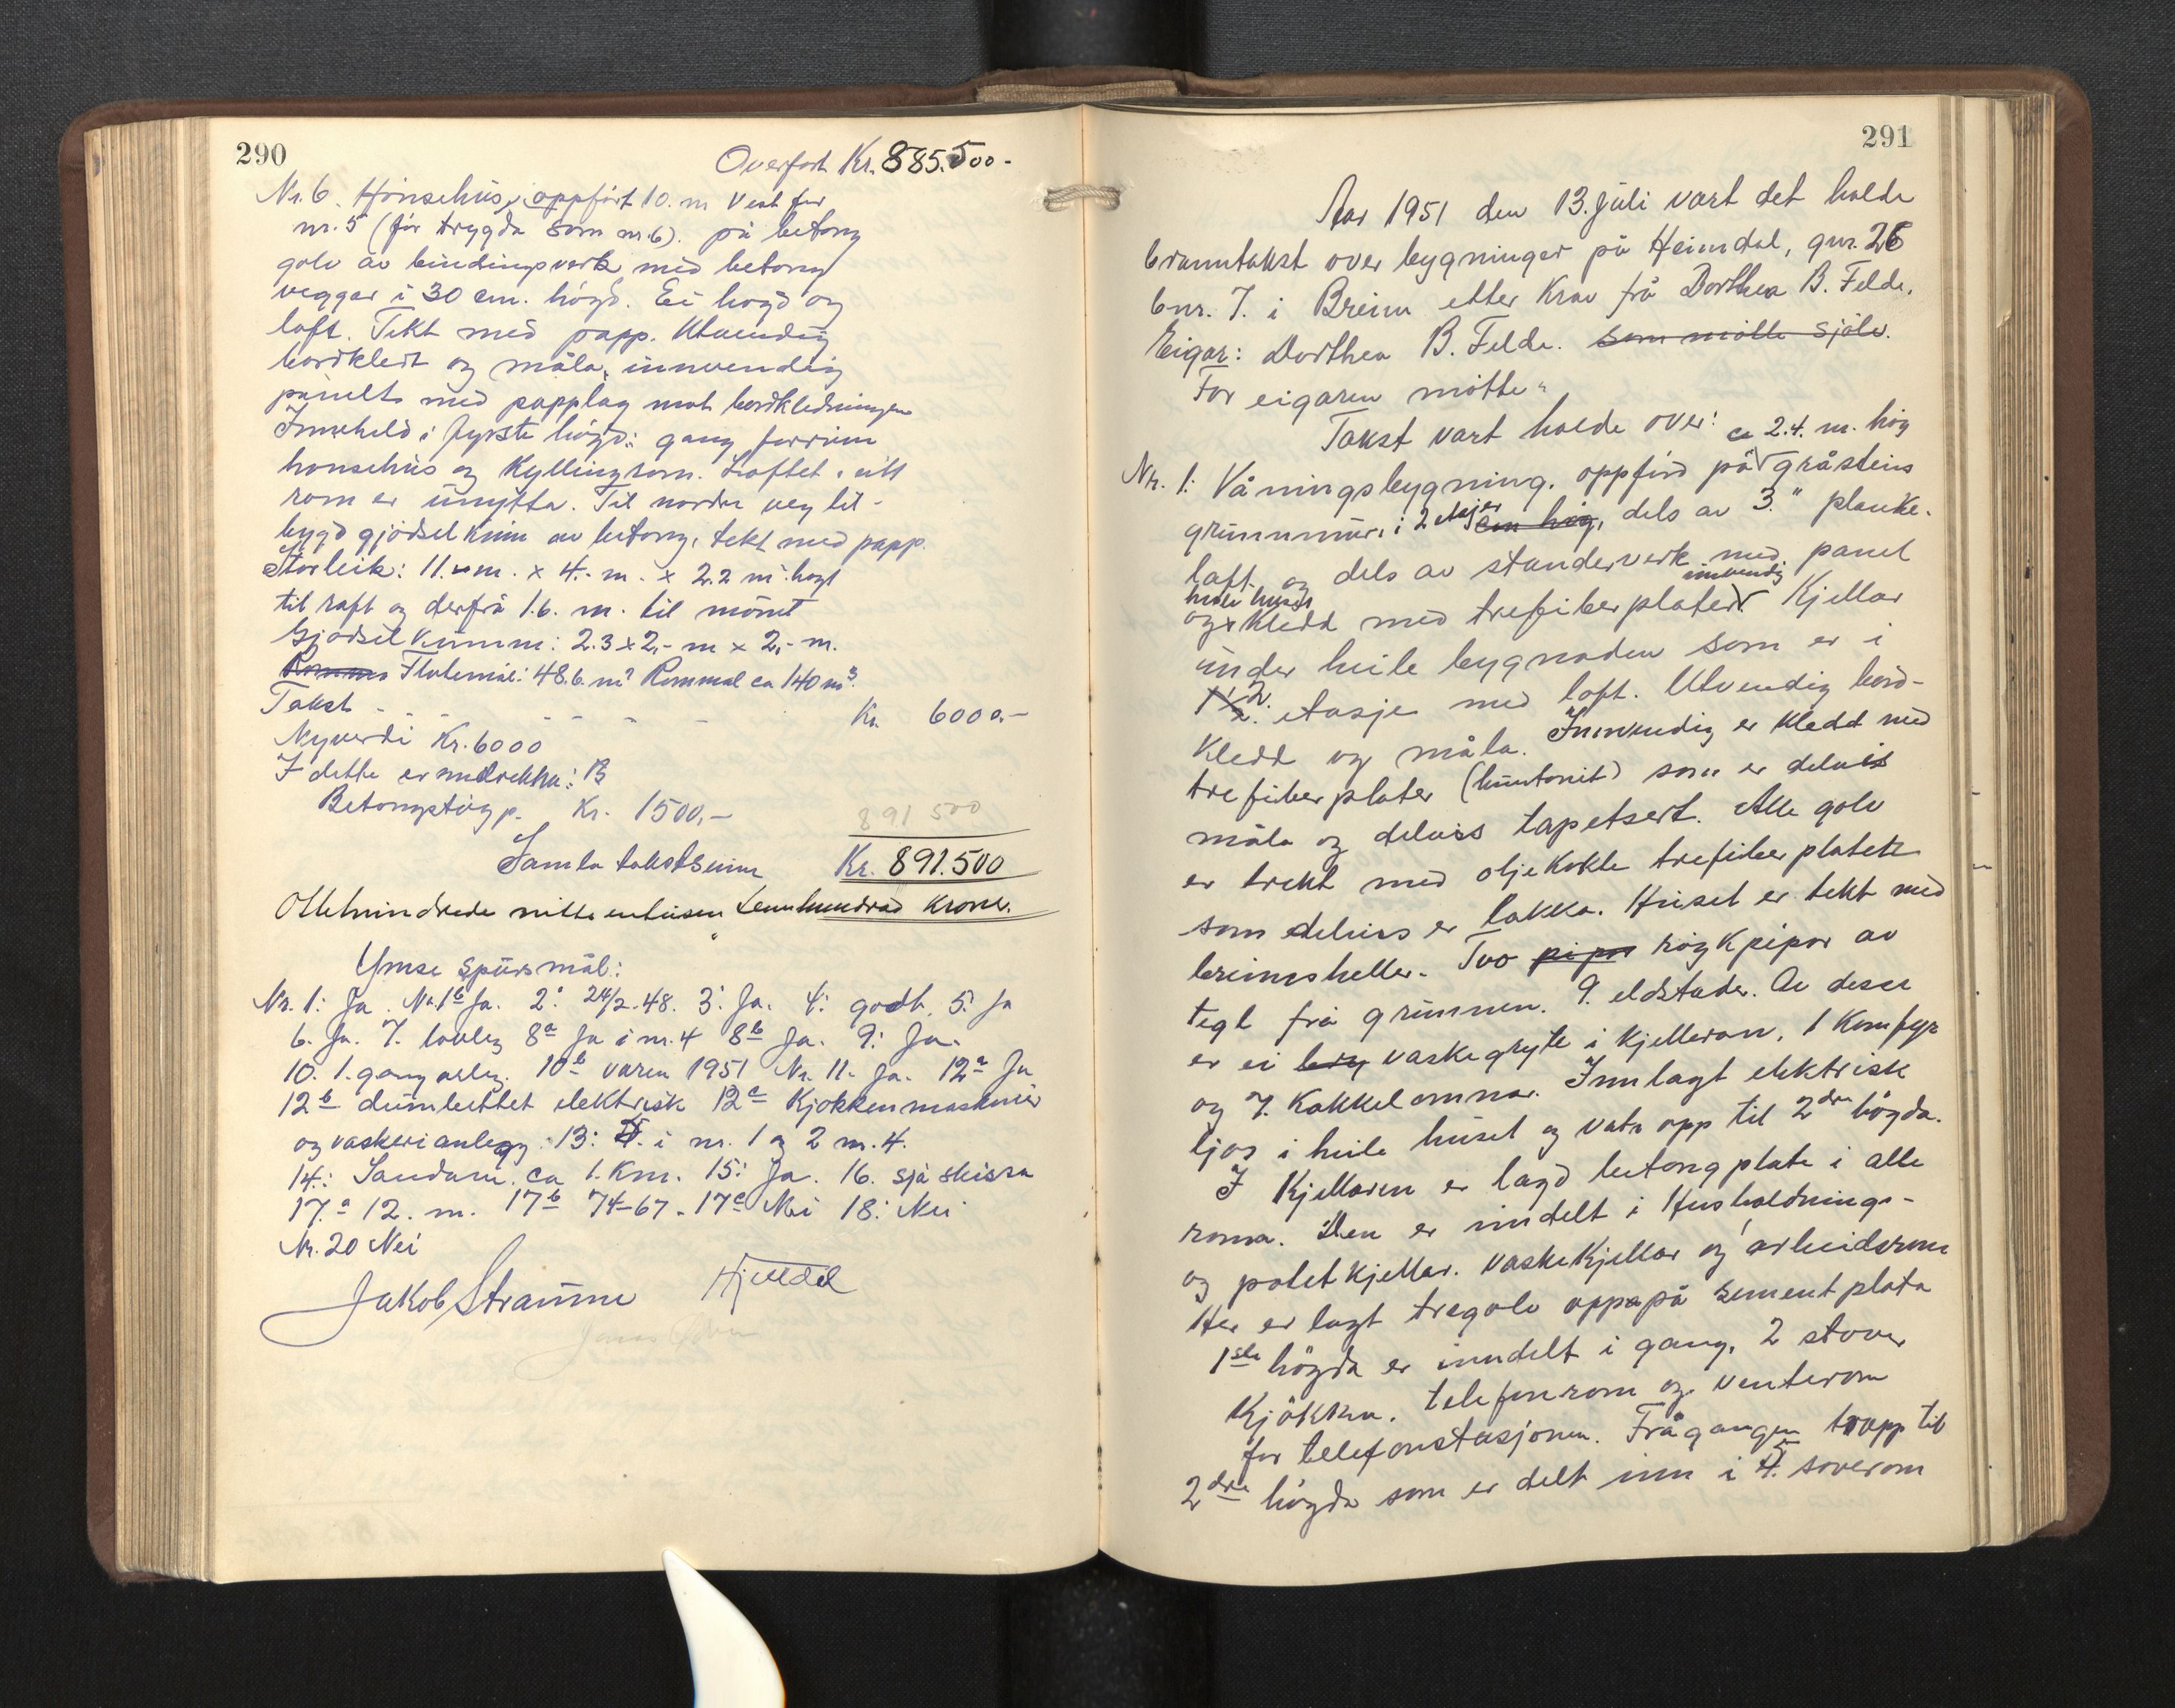 290
Overført Kr. 885.500-
Nr. 6. Hönsehus, oppfört 10. m vest for
nr. 5 (för trygda som nr. 6). på betong
golv av bindingsverk med betong
vegger i 30 cm. högd. Ei högd og
loft. Tekt med papp. Utvendig
bordkledt og måla, innvendig
panelt med papplag mot bordkledningen
Inneheld i fyrste högd: gang forrom
honsehus og Kyllingrom. Loftet, eitt
rom er unytta. Til nordre veg til-
bygd gjödselkum av betong, tekt med papp.
Storleik: 11.- m. x 4.- m. x 2.2 m högt
til raft og derfrå 1.6. m. til mönet
Gjödselkumm: 2.3 x 2,- m x 2,- m.
Flatemål: 48.6. m² Rommål ca 140 m³.
Takst - - - - - Kr. 6000.-
Nyverdi Kr. 6000
I dette er medrekna: B
Betongstöyp. Kr. 1500,-
891 500
Samla takstsum Kr. 891.500
Ottehundrede nitti eintusen femhundrad kroner.
Ymse spursmål:
Nr. 1: Ja. Nr. 1b Ja. 2: 24/2-48. 3: Ja. 4: godt. 5: Ja
6. Ja. 7. lovleg 8a Ja i nr. 4 8b Ja. 9: Ja.
10. 1. gang årleg. 10b våren 1951 Nr. 11. Ja. 12a Ja
12b dumbettet elektrisk 12c Kjökkenmaskiner
og vaskerianlegg. 13: i nr. 1 og 2 nr. 4.
14: Sandane. ca 1. Km. 15: Ja. 16. sjå skissa
17.a 12. m. 17b 74-67. 17c Nei 18: Nei
Nr. 20 Nei
Jakob Straume Hjelldal
291
Aar 1951 den 13. juli vart det halde
branntakst over bygningar på Heimdal, gnr. 26
bnr. 7. i Breim etter Krav frå Dorthea B. Felde.
Eigar: Dorthea B. Felde. som mötte sjölv.
For eigaren mötte "
Takst vart halde over: ca 2.4. m. hög
Nr. 1: Våningsbygning. oppförd på gråsteins
grunnmur, i 2 etasjer em hög, dels av 3." planke.
laft. og dels av standerverk med panel
heile huset innvendig
og kledd med trefiberplater Kjellar
under heile bygnaden som er i
1½ 2. etasje med loft. Utvendig bord-
kledd og måla. Innvendig er kledd med
trefiberplater (huntonit) som er delvis
måla og delvis tapetsert. Alle golv
er trekt med oljekokte trefiberplater
som delvis er lakka. Huset er tekt med
breimsheller. Tvo pipor röykpipor av
tegl frå grunnen. 9. eldstader. Av desse
er ei bry vaskegryte i kjelleren, 1 Komfyr
og 7. Kakkelomnar. Innlagt elektrisk
ljos i heile huset og vatn opp til 2dre högda.
I Kjellaren er lagd betongplate i alle
roma. Den er inndelt i Husholdnings-
og potetkjellar. vaskekjellar og arbeidsrom
Her er lagt tregolv oppepå sementplata
1ste högda er inndelt i gang, 2 stover
Kjökken. telefonrom og venterom
for telefonstasjonen. Frå gangen trapp til
2dre högda som er delt inn i 5 soverom